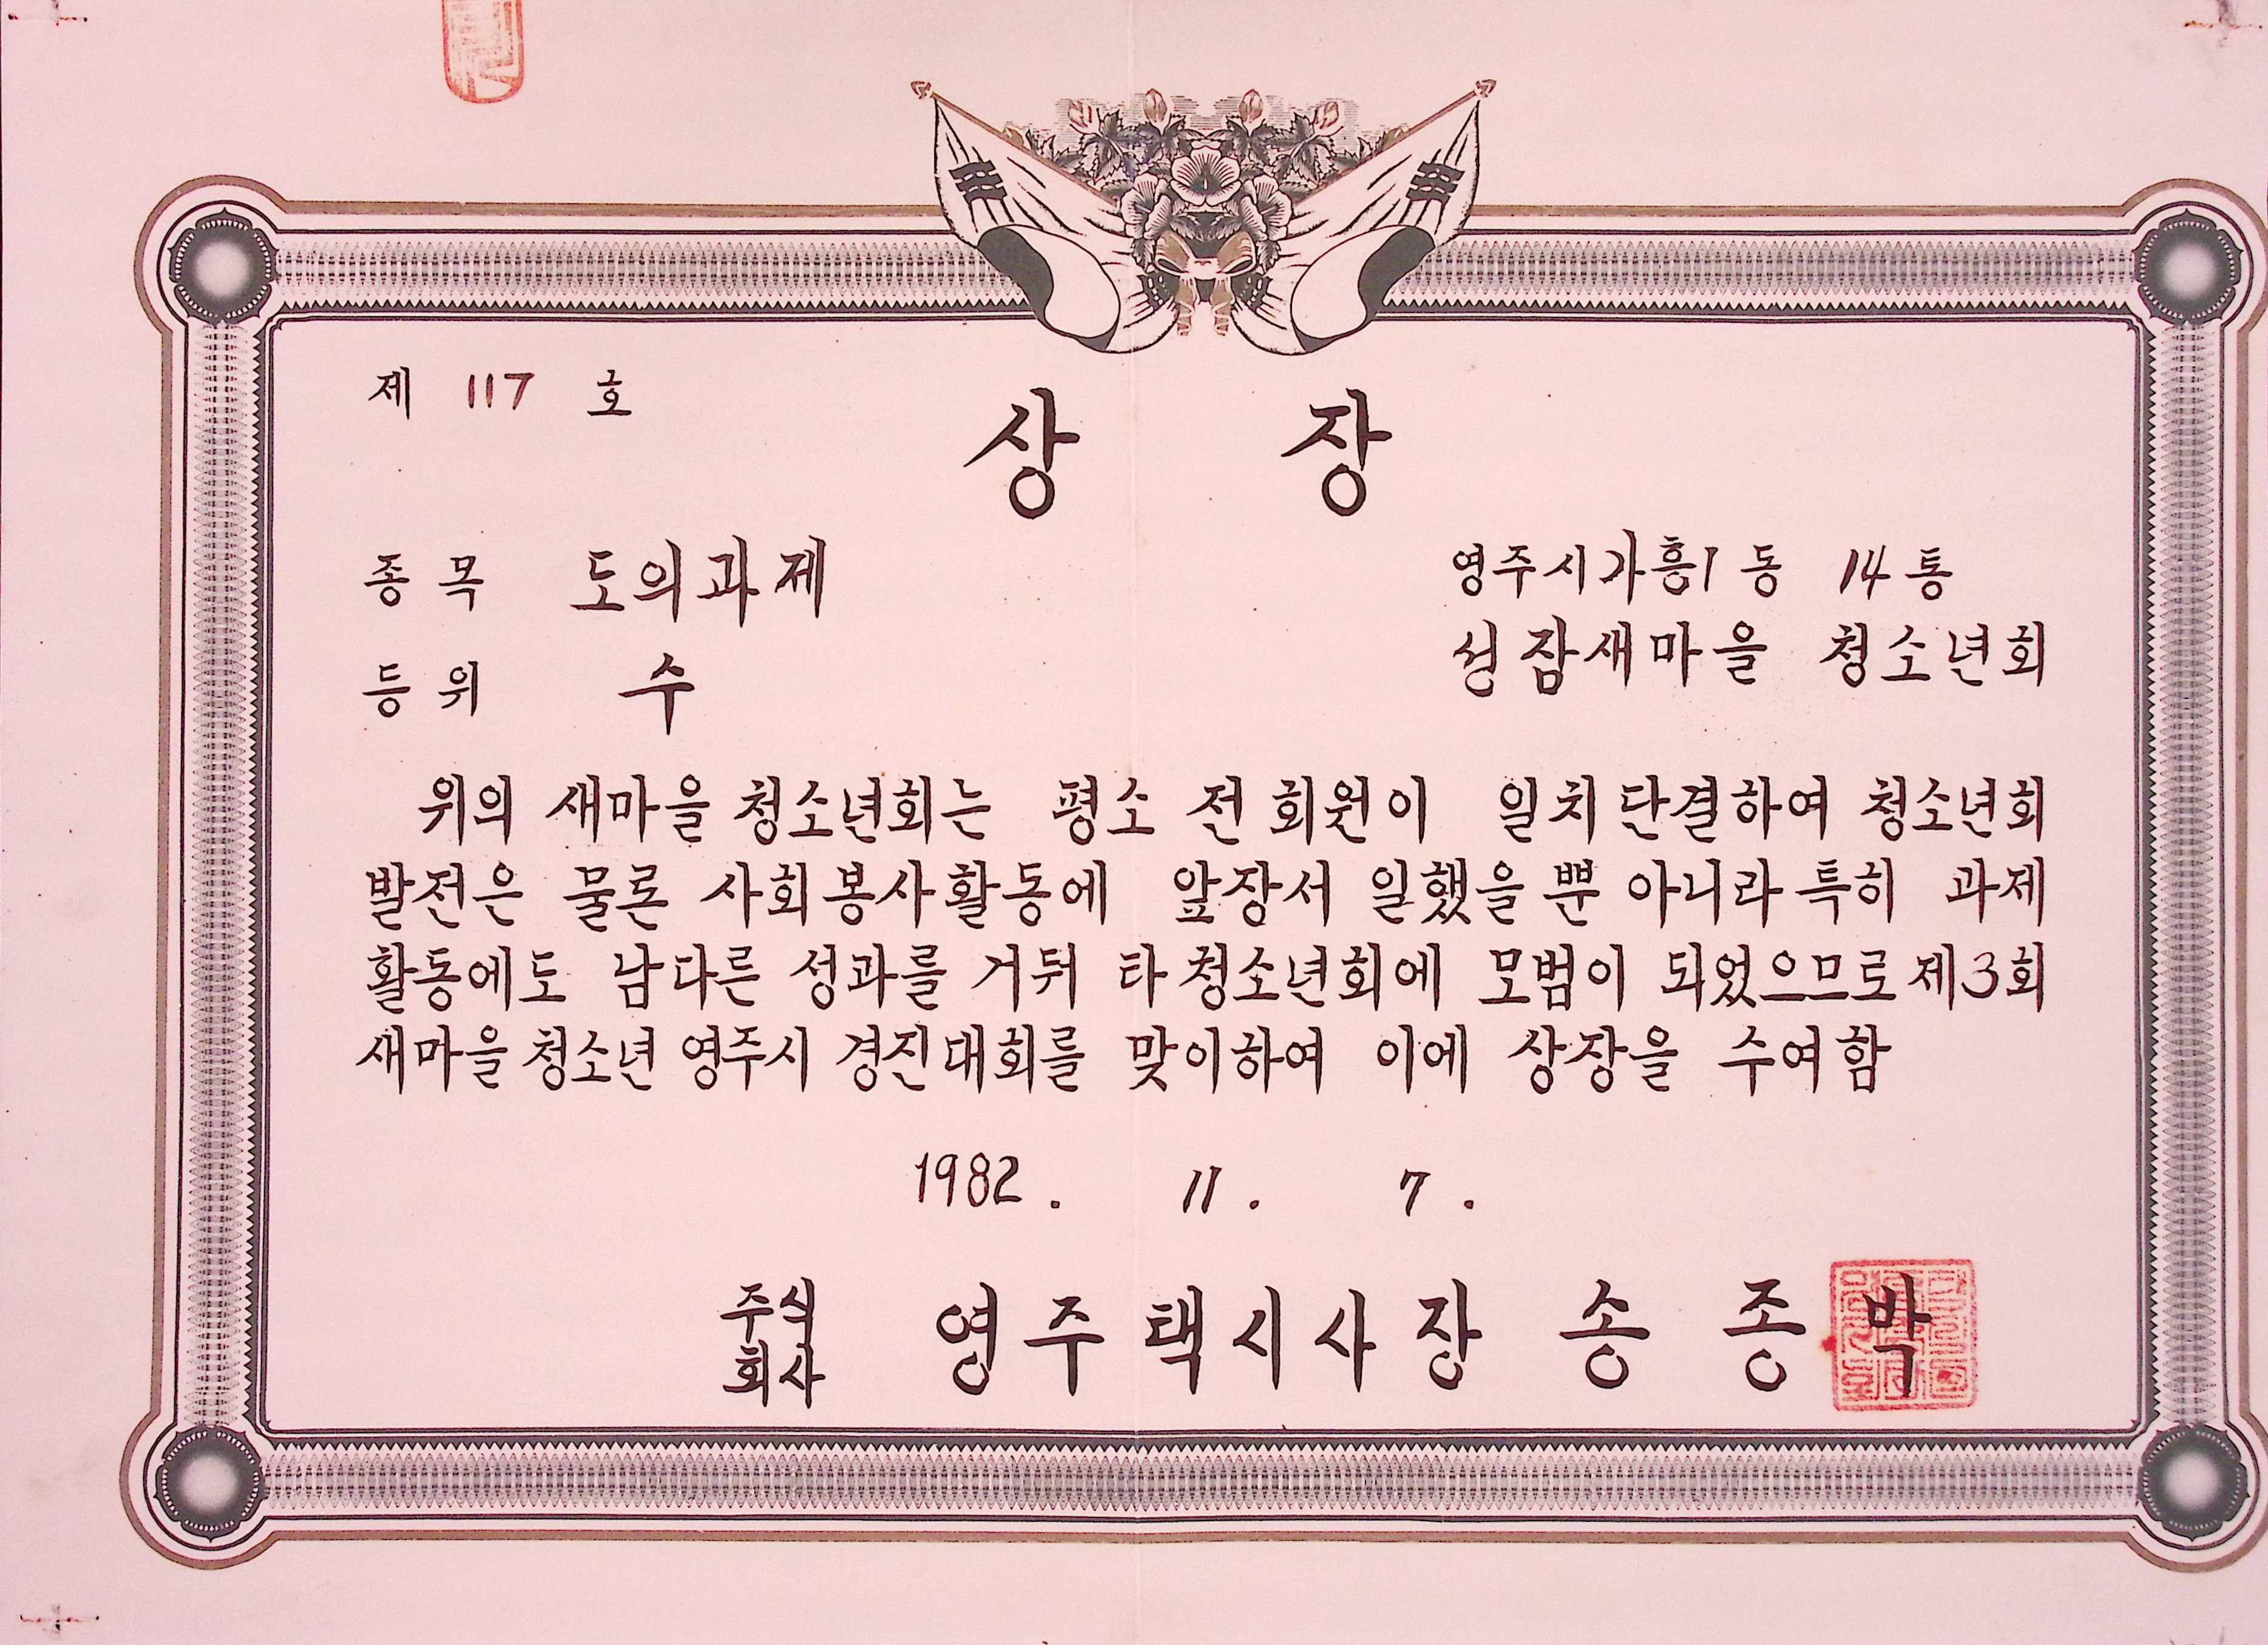 제 117 호
상 장
종목 도의과제
영주시가흥1동 14통
등위 수
성잠새마을 청소년회
위의 새마을 청소년회는 평소 전 회원이 일치 단결하여 청소년회
발전은 물론 사회봉사활동에 앞장서 일했을 뿐 아니라 특히 과제
활동에도 남다른 성과를 거둬 타 청소년회에 모범이 되었으므로 제3회
새마을 청소년 영주시 경진대회를 맞이하여 이에 상장을 수여함
1982. 11. 7.
주식회사 영주택시사장 송종박